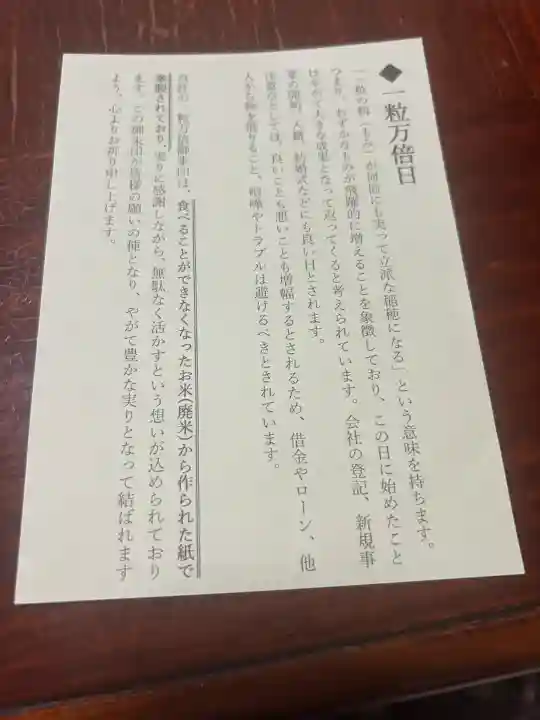 ◆一粒万倍日
「一粒の籾(もみ)が何倍にも実って立派な稲穂になる」という意味を持ちます。
つまり、わずかなものが飛躍的に増えることを象徴しており、この日に始めたこと
はやがて大きな成果となって返ってくると考えられています。会社の登記、新規事
業の開始、入籍、結婚式などにも良い日とされます。
注意点としては、良いことも悪いことも増幅するとされるため、借金やローン、他
人から物を借りること、喧嘩やトラブルは避けるべきとされています。
当社の一粒万倍御朱印は、食べることができなくなったお米(廃米)から作られた紙で
奉製されており、実りに感謝しながら、無駄なく活かすという想いが込められており
ます。この御朱印が皆様の願いの種となり、やがて豊かな実りとなって結ばれます
よう、心よりお祈り申し上げます。